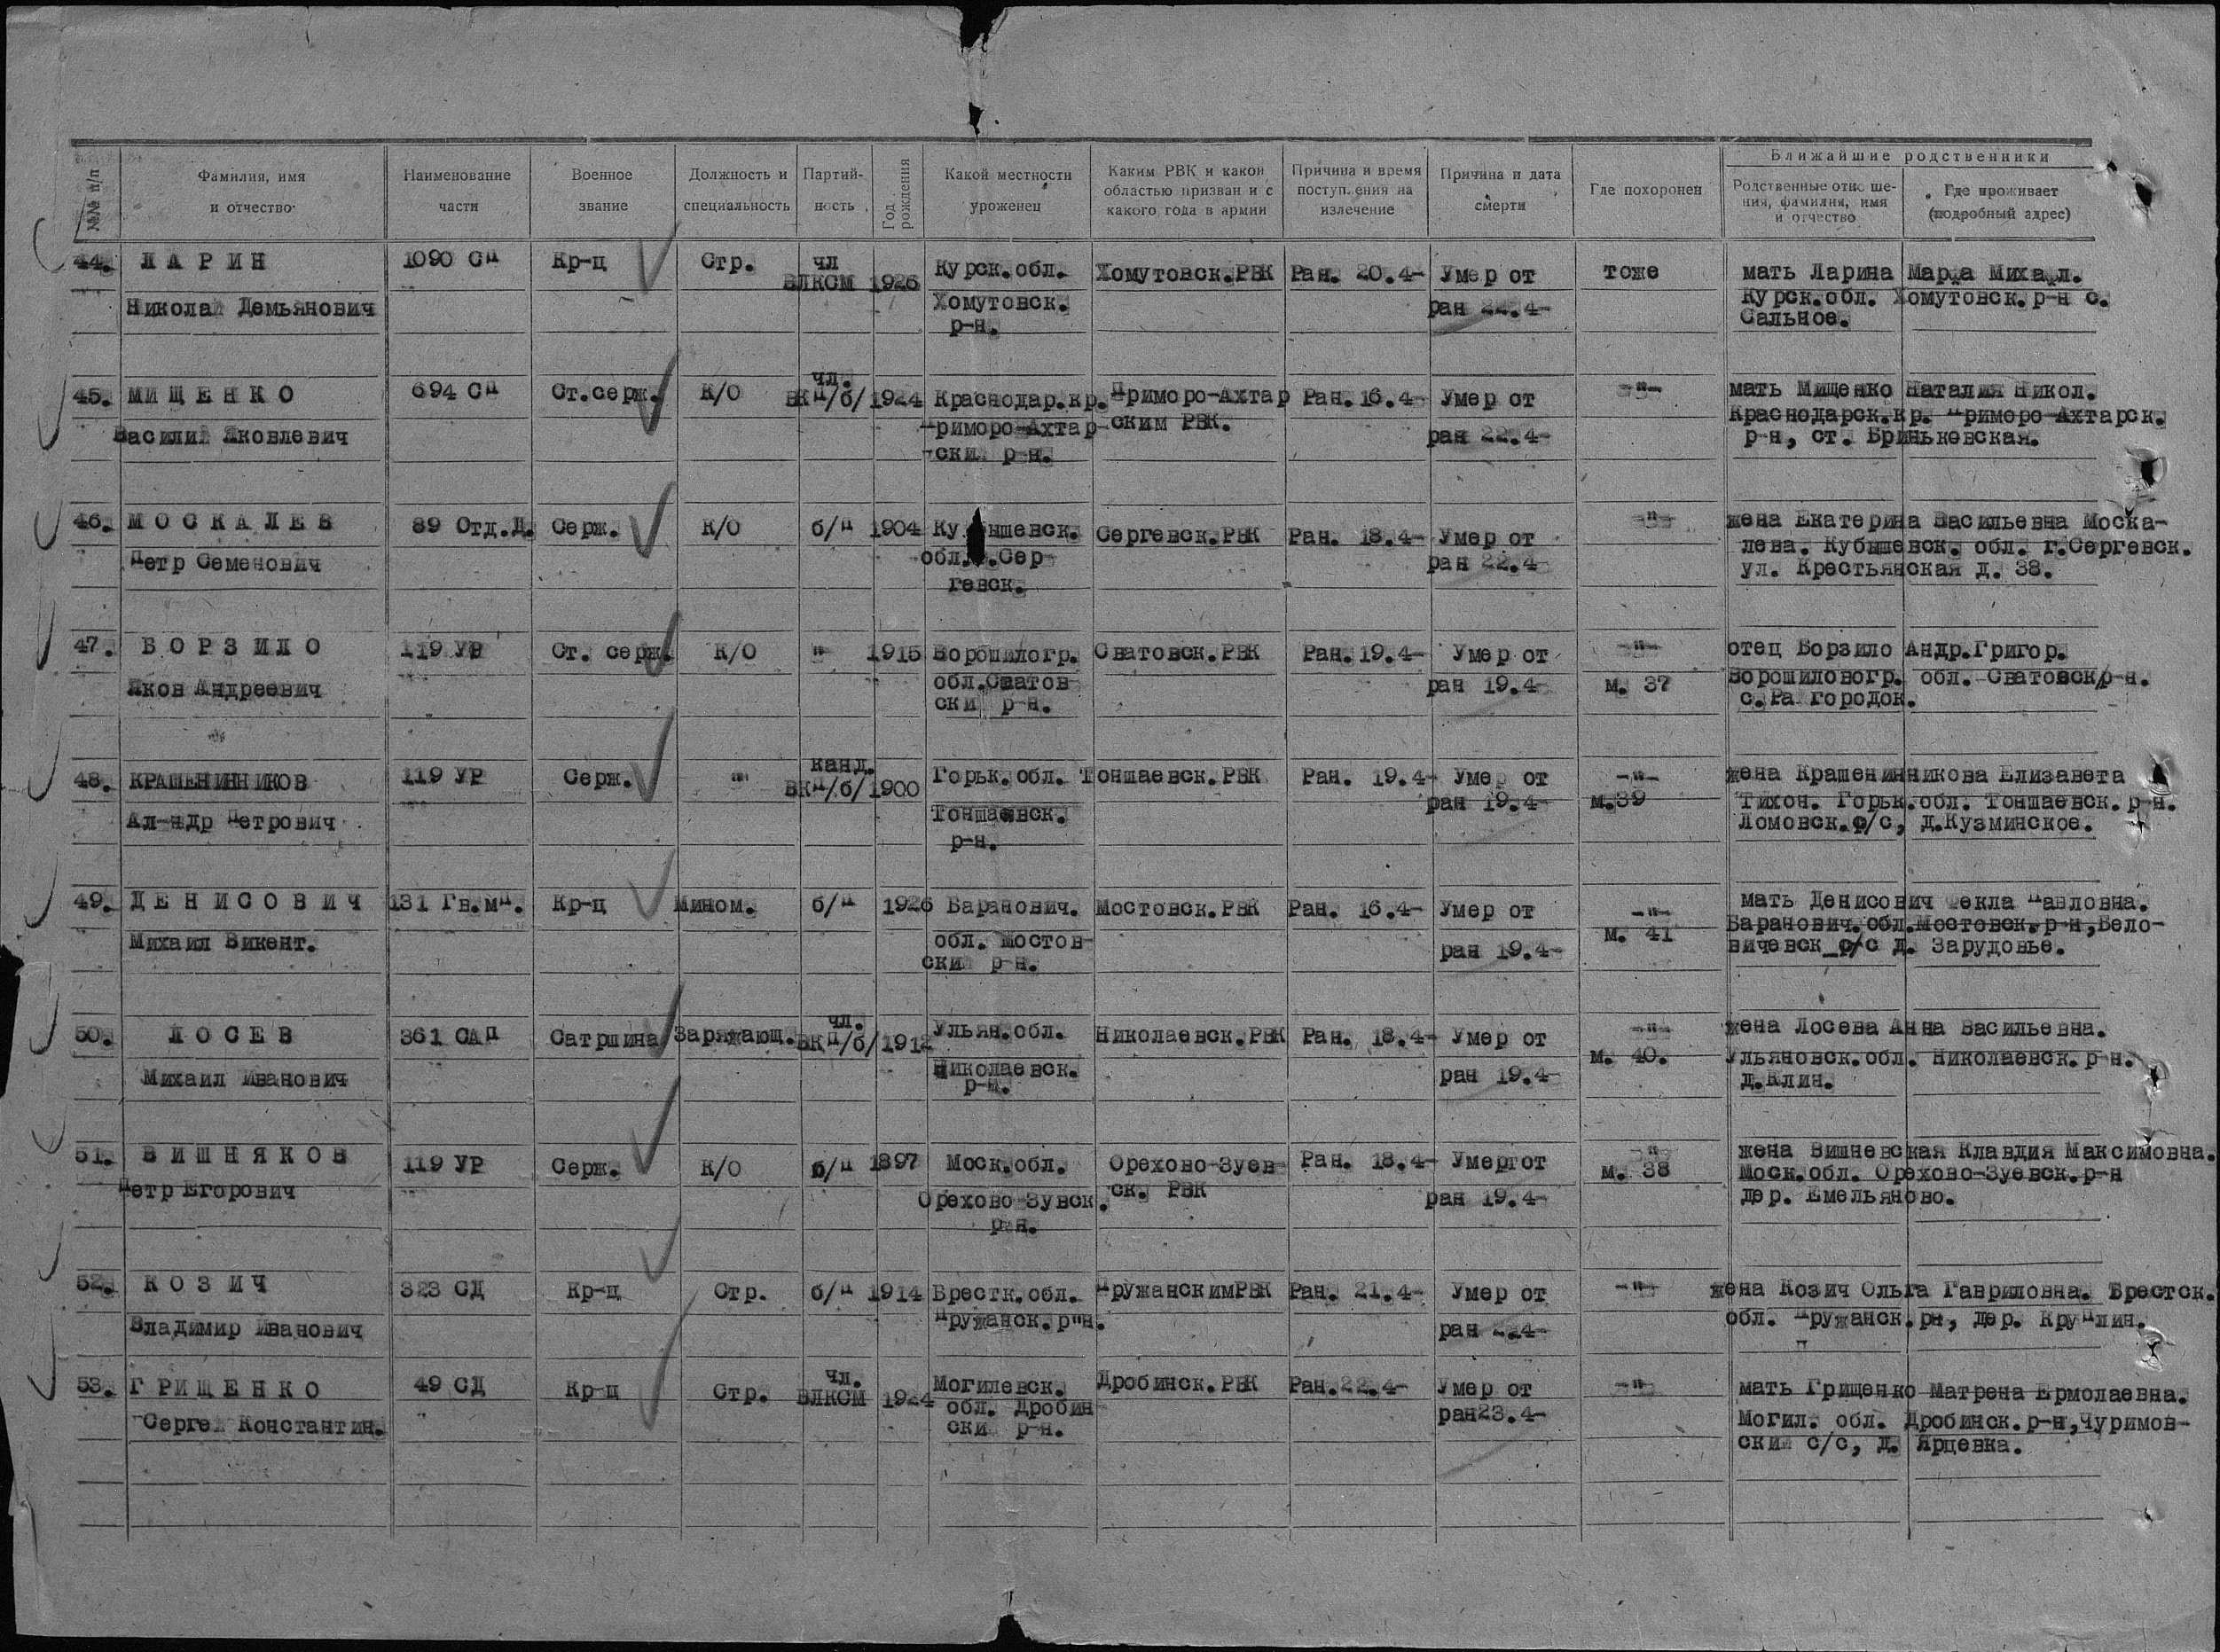 №№ п/п
Фамилия, имя и отчество
Наименование части
Военное звание
Должность и специальность
Партийность
Год рождения
Какой местности уроженец
Каким РВК и какой областью призван и с какого года в армии
Причина и время поступления на излечение
Причина и дата смерти
Где похоронен
Ближайшие родственники
Родственные отноше-
ния, фамилия, имя
и отчество
Где проживает
(подробный адрес)
44. ЛАРИН 1090 Сп Кр-ц Стр. чл ВЛКСМ 1926 Курск.обл. Хомутовск.РВК Ран. 20.4- Умер от тоже мать Ларина Марфа Михайл.
Николай Демьянович Хомутовск. р-н. ран 22.4- Курск.обл. Хомутовск.р-н с.
Сальное.
45. МИЩЕНКО 694 Сп Ст.серж. К/О чл. ВКП/б/ 1924 Краснодар.кр. Приморо-Ахтар Ран.16.4- Умер от -"- мать Мищенко Наталия Никол.
Василий Яковлевич Приморо-Ахтар- ским РВК. ран 22.4- Краснодарск.кр. Приморо-Ахтарск.
-ский р-н. р-н, ст. Бриньковская.
46. МОСКАЛЕВ 89 Отд.Д. Серж. К/О б/п 1904 Ку ышевск. Сергевск.РВК Ран. 18.4- Умер от -"- жена Екатерина Васильевна Моска-
Петр Семенович обл. .Сер- ран 22.4- лева. Кубышевск. обл. г.Сергевск.
гевск. ул. Крестьянская д. 38.
47. БОРЗИЛО 119 УР Ст. серж. К/О " 1915 Ворошилогр. Сватовск.РВК Ран.19.4- Умер от -"- отец Борзило Андр.Григор.
Яков Андреевич обл.Сватов- ран 19.4- м. 37 Ворошиловогр. обл. Сватовск/р-н.
ский р-н. с.Рай городок.
48. КРАШЕНИННИКОВ 119 УР Серж. " канд. ВКП/б/ 1900 Горьк.обл. Тоншаевск.РВК Ран. 19.4- Умер от -"- жена Крашенинникова Елизавета
Ал-ндр Петрович Тоншаевск. ран 19.4- м.39 Тихон. Горьк.обл. Тоншаевск.р-н.
р-н. Ломовск.с/с, д.Кузминское.
49. ДЕНИСОВИЧ 131 Гв.мп. Кр-ц Мином. б/п 1926 Баранович. Мостовск.РВК Ран. 16.4- Умер от -"- мать Денисович Фекла Павловна.
Михаил Викент. обл. Мостов- ран 19.4- м. 41 Баранович.обл.Мостовск.р-н,Бело-
ский р-н. вичевск_с/с д. Зарудовье.
50. ЛОСЕВ 361 САП Сатршина Заряжающ. чл. ВКП/б/ 1912 Ульян.обл. Николаевск.РВК Ран. 18.4- Умер от -"- жена Лосева Анна Васильевна.
Михаил Иванович Николаевск. ран 19.4- м. 40. Ульяновск.обл. Николаевск.р-н.
р-н. д.Клин.
51. ВИШНЯКОВ 119 УР Серж. К/О б/п 1897 Моск.обл. Орехово-Зуев- Ран. 18.4- Умер от -"- жена Вишневская Клавдия Максимовна.
Петр Егорович Орехово-Зувск. ск. РВК ран 19.4- м. 38 Моск.обл. Орехово-Зуевск.р-н
р-н. дер. Емельяново.
52. КОЗИЧ 323 СД Кр-ц Стр. б/п 1914 Брестк.обл. ПружанскимРВК Ран. 21.4- Умер от -"- жена Козич Ольга Гавриловна. Брестск.
Владимир Иванович Пружанск.р"н. ран обл. Пружанск.рн, дер. Круплин.
53. ГРИЩЕНКО 49 СД Кр-ц Стр. чл. ВЛКСМ 1924 Могилевск. Дробинск.РВК Ран.22.4- Умер от -"- мать Грищенко Матрена Ермолаевна.
Сергей Константин. обл. Дробин ран23.4- Могил. обл. Дробинск.р-н,Чуримов-
ский р-н. ский с/с, д. Ярцевка.